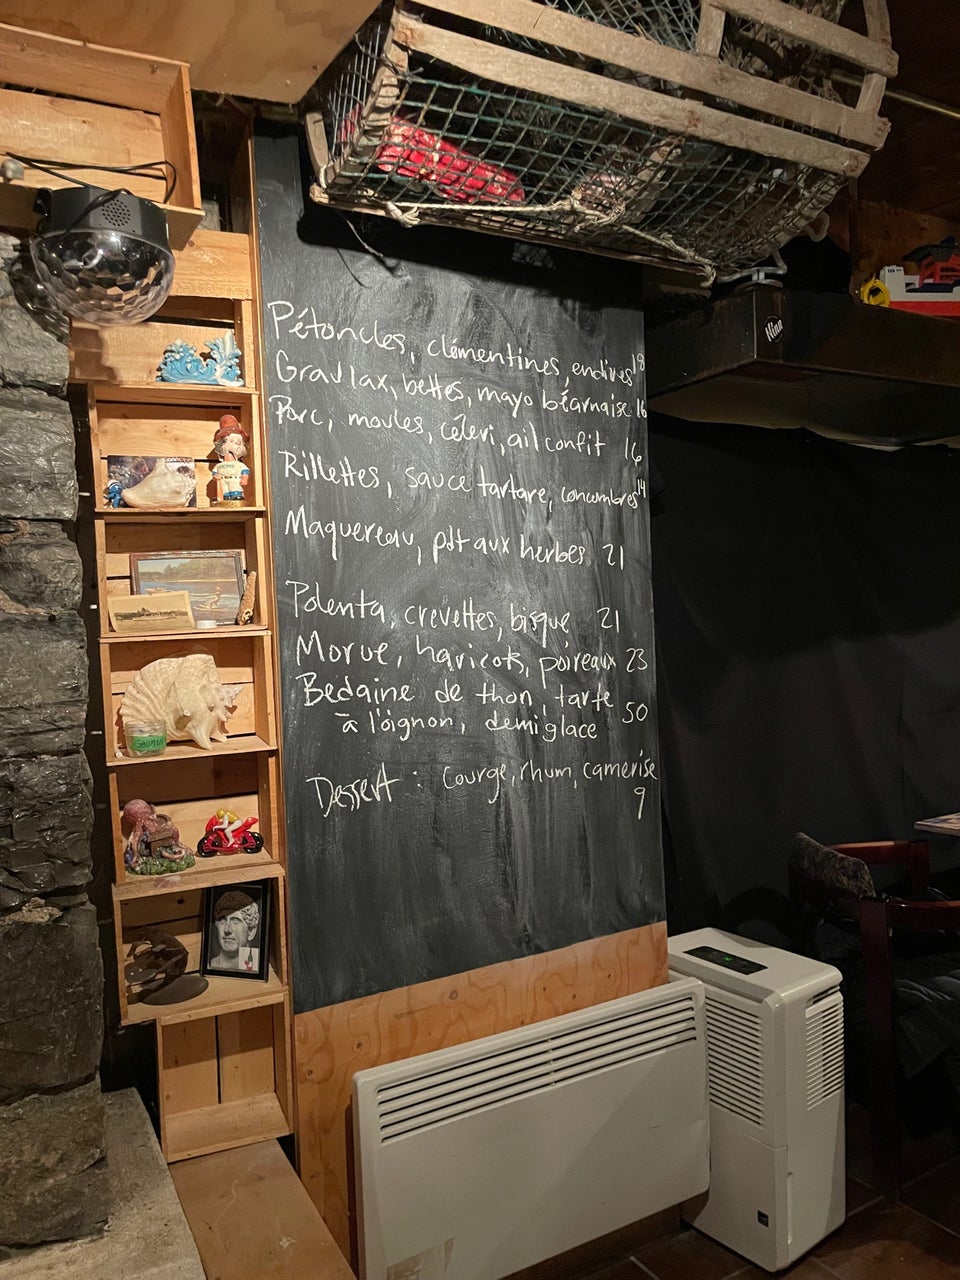 Pétoncles, clémentines, endives 18
Gravlax, bettes, mayo béarnaise 16
Porc, moules, céleri, ail confit 16
Rillettes, sauce tartare, concombres 14
Maquereau, pdt aux herbes 21
Polenta, crevettes, bisque 21
Morue, haricots, poireaux 23
Bedaine de thon, tarte
à l'oignon, demi glace 50
Dessert : Courge, rhum, camerise
9